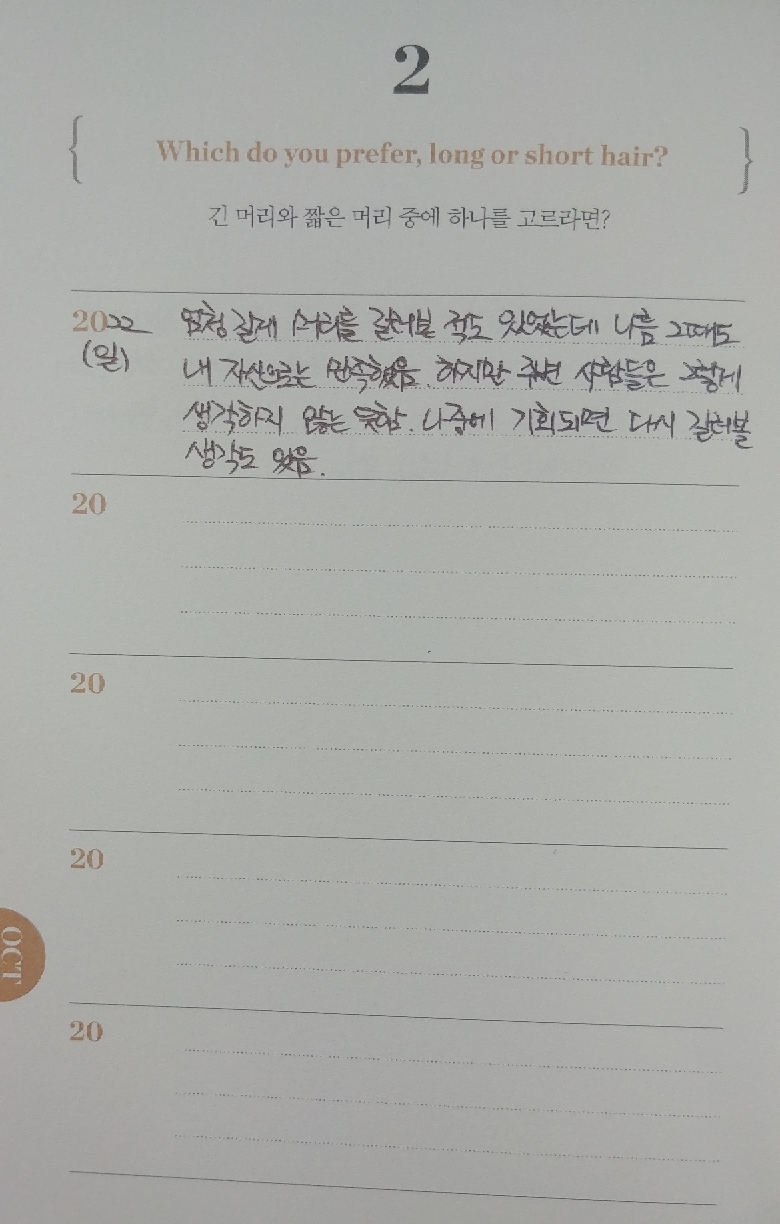 2
{ Which do you prefer, long or short hair? }
긴 머리와 짧은 머리 중에 하나를 고르라면?
2022 엄청 길게 머리를 길러본 적도 있었는데 나름 그때도
(일) 내 자신으로는 만족했음. 하지만 주변 사람들은 그렇게
생각하지 않는 듯함. 나중에 기회되면 다시 길러볼
생각도 있음.
20
20
20
OCT
20